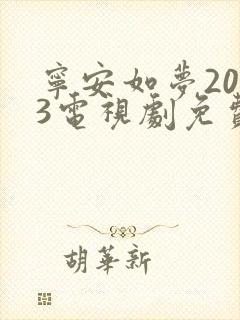 寧安如夢20
3電視劇免費
胡華新